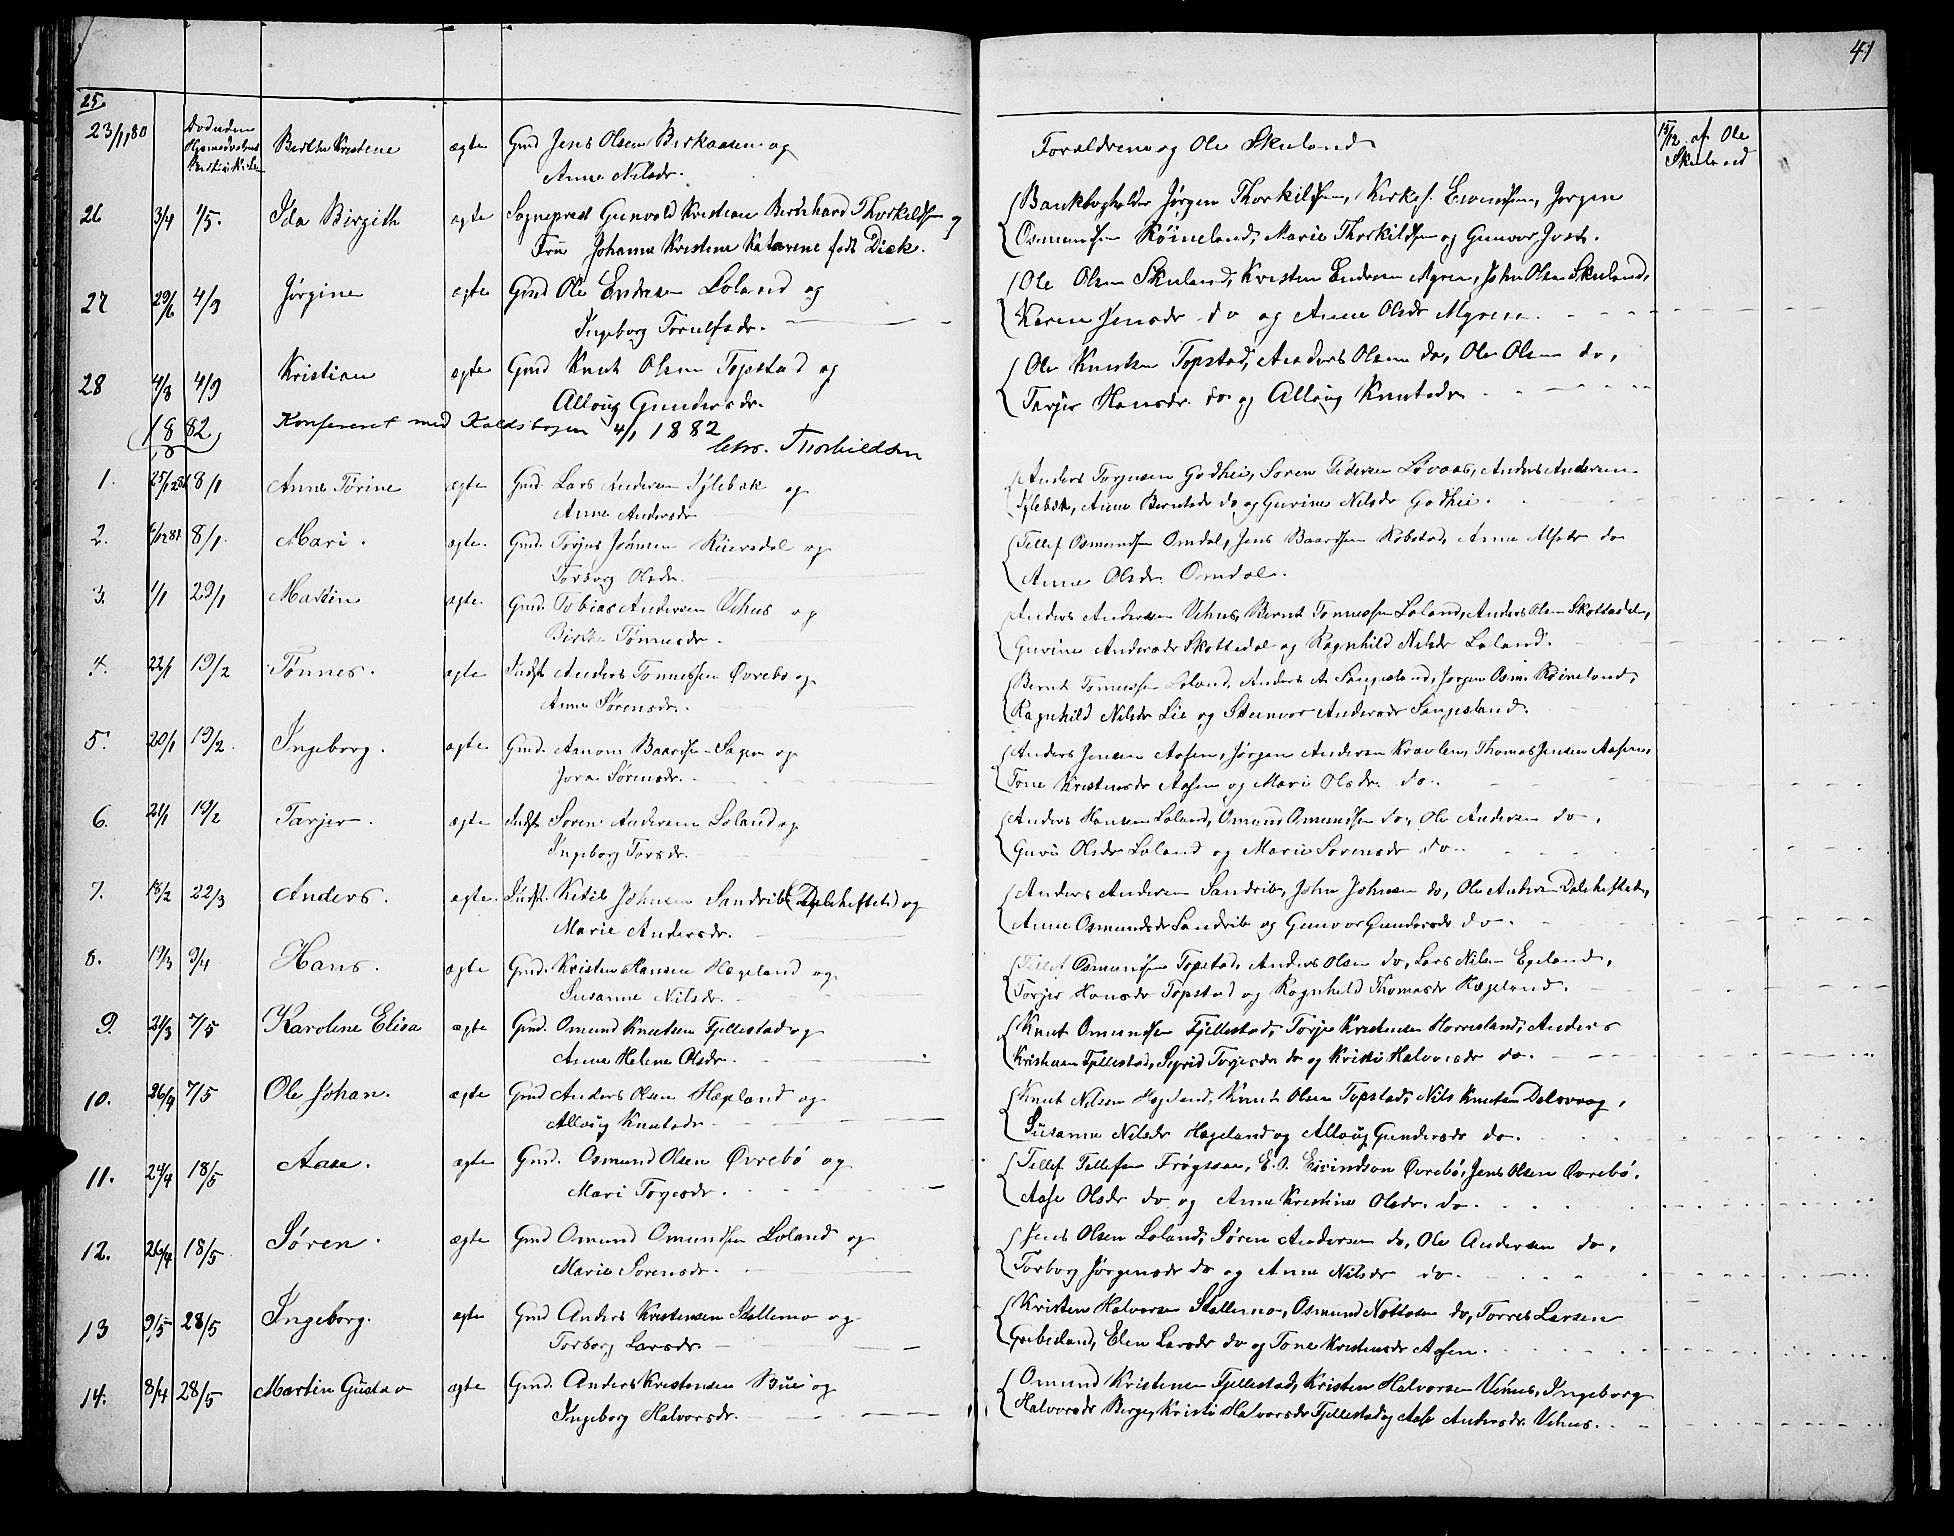 41
25. 23/1 80 Berthe Kristine ægte Gmd Jens Olsen Birkaasen og Forældrene og Ole Skuland 15/12 af Ole
Anne Nilsdr. Skuland
26 3/4 1/5. Ida Birgith ægte Sogneprest Gunvald Kristian Bernhard Thorkildsen og Bankbogholder Jørgen Thorkildsen, Kirkes. Evensen, Jørgen
Frü Johanne Kristine Katarine født Dick. Osmundsen Røineland, Marie Thorkildsen og Gunvor Jvst.
27 29/6 4/9 Jørgine ægte Gmd Ole Endresen Loland og Ole Olsen Skuland, Kristen Endresen Myren, John Olsen Skuland,
Ingeborg Torulfsdr. Karen Jensdr do og Anne Olsdr Myren.
28 4/8 4/9 Kristian ægte Gmd Knut Olsen Topstad og Ole Knutsen Topstad, Anders Olsen do, Ole Olsen do,
Alloüg Gundersdr. Torjer Hansdr. do og Alloüg Knutsdr
1882 Konfereret med Kaldsbogen 4/1 1882
Thorkildsen
1. 25/12 81 8/1 Anne Tørine ægte Gmd. Lars Andersen Iglebæk og Anders Torgusen Godhei, Søren Pedersen Løvaas, Anders Andersen
Anne Andersdr Iglebæk, Anne Berntsdr do og Gurine Nilsdr Godhei.
2. 6/12 81 8/1. Mari. ægte. Gmd. Torjus Johnsen Rüersdal og Tellef Osmundsen Omdal, Jens Baardsen Robstad, Anne Alfsdr do
Torborg Olsdr. Anne Olsdr. Omdal.
3. 1/1 29/1 Martin ægte Gmd. Tobias Andersen Vehus og Anders Andersen Vehus, Bernt Tønnessen Loland, Anders Olsen Skottedal,
Birthe Tønnesdr. Gurine Andersdr Skottedal og Ragnhild Nilsdr Loland.
4. 22/1 19/2 Tønnes. ægte Indst Anders Tønnessen Øvrebø og Bernt Tønnessen Loland, Anders A. Sangesland, Jørgen Osm. Røineland,
Anne Sørensdr. Ragnhild Nilsdr Lie og Steinvor Andersdr Sangesland.
5. 20/1 19/2. Ingeborg. ægte Gmd. Aanon Baardsen Sagen og Anders Jensen Aasen, Jørgen Andersen Kravlen, Thomas Jensen Aasen,
Jora Sørensdr. Tone Kristensdr Aasen og Mari Olsdr. do.
6. 21/1 19/2 Tarjer. ægte Indst Søren Andersen Loland og Anders Hansen Loland, Omund Omundsen do, Ole Andersen do,
Ingeborg Torsdr. Guri Olsdr Loland og Marie Sørensdr do.
7. 18/2 22/3 Anders. ægte. Indst. Ketil Johnsen Sandrib (Dalekeftet) og Anders Andersen Sandrib, John Johnsen do, Ole Andersen Dalekeftet,
Marie Andersdr. Anne Osmundsdr Sandrib og Gunvor Gundersdr do.
8. 19/3 9/4 Hans. ægte Gmd. Kristen Hansen Hægeland og Tellef Osmundsen Topstad, Anders Olsen do, Lars Nilsen Egeland,
Susanne Nilsdr. Torjer Hansdr Topstad og Ragnhild Thomasdr Hægeland.
9. 21/3 7/5 Karoline Elisa ægte Gmd. Omund Knutsen Fjellestad og Knut Omundsen Fjellestad, Torjus Kristensen Horresland, Anders
Anne Helene Olsdr. Kristensen Fjellestad, Sigrid Torjesdr do og Kristi Halvorsdr do.
10. 26/4 7/5 Ole Johan. ægte Gmd Anders Olsen Hægeland og Knut Nilsen Hægeland, Knut Olsen Topstad, Nils Knutsen Dalevaag,
Alloüg Knutsdr. Susanne Nilsdr Hægeland og Alloüg Gundersdr do.
11. 24/4 18/5 Aase. ægte Gmd. Osmund Olsen Øvrebø og Tellef Tellefsen Frøgsaa, E. O. Eivindson Øvrebø, Jens Olsen Øvrebø,
Mari Togesdr. Aase Olsdr do og Anne Kristine Olsdr. do.
12. 26/4 18/5 Søren. ægte Gmd Omund Omundsen Loland og Jens Olsen Loland, Søren Andersen do, Ole Andersen do,
Marie Sørensdr. Torborg Jørgensdr do og Anne Nilsdr do.
13 9/5 28/5 Ingeborg. ægte Gmd Anders Kristensen Stallemo og Kristen Halvorsen Stallemo, Osmund Nottosen do, Torres Larsen
Torborg Larsdr. Greibesland, Elen Larsdr do og Tone Kristensdr Aasen.
14. 8/4 28/5 Martin Gustav ægte Gmd. Anders Kristensen Büe og Omund Kristensen Fjellestad, Kristen Halvorsen Vehus, Ingeborg
Ingeborg Halvorsdr. Halvorsdr Berge, Kristi Halvorsdr Fjellestad og Aase Andersdr. Vehus.